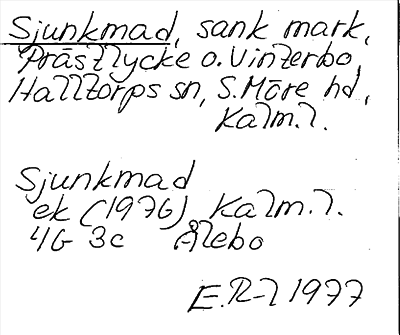 Sjunkmad, sank mark,
Prästlycke o. Vinterbo,
Halltorps sn, S. Möre hd,
Kalm. l.
Sjunkmad
ek (1976) Kalm. l.
4G 3c Ålebo
E. R-l 1977